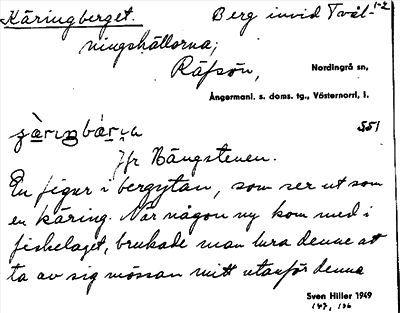 Käringberget. Berg invid Tvål- 1-2
ningshällorna,
Räfsön, Nordingrå sn,
Ångermanl. s. doms. tg., Västernorrl. l.
551
Jfr Bångstenen.
En figur i bergytan, som ser ut som
en käring. När någon ny kom med i
fiskelaget, brukade man lura denne att
ta av sig mössan mitt utanför denna
Sven Hiller 1949
147, 156